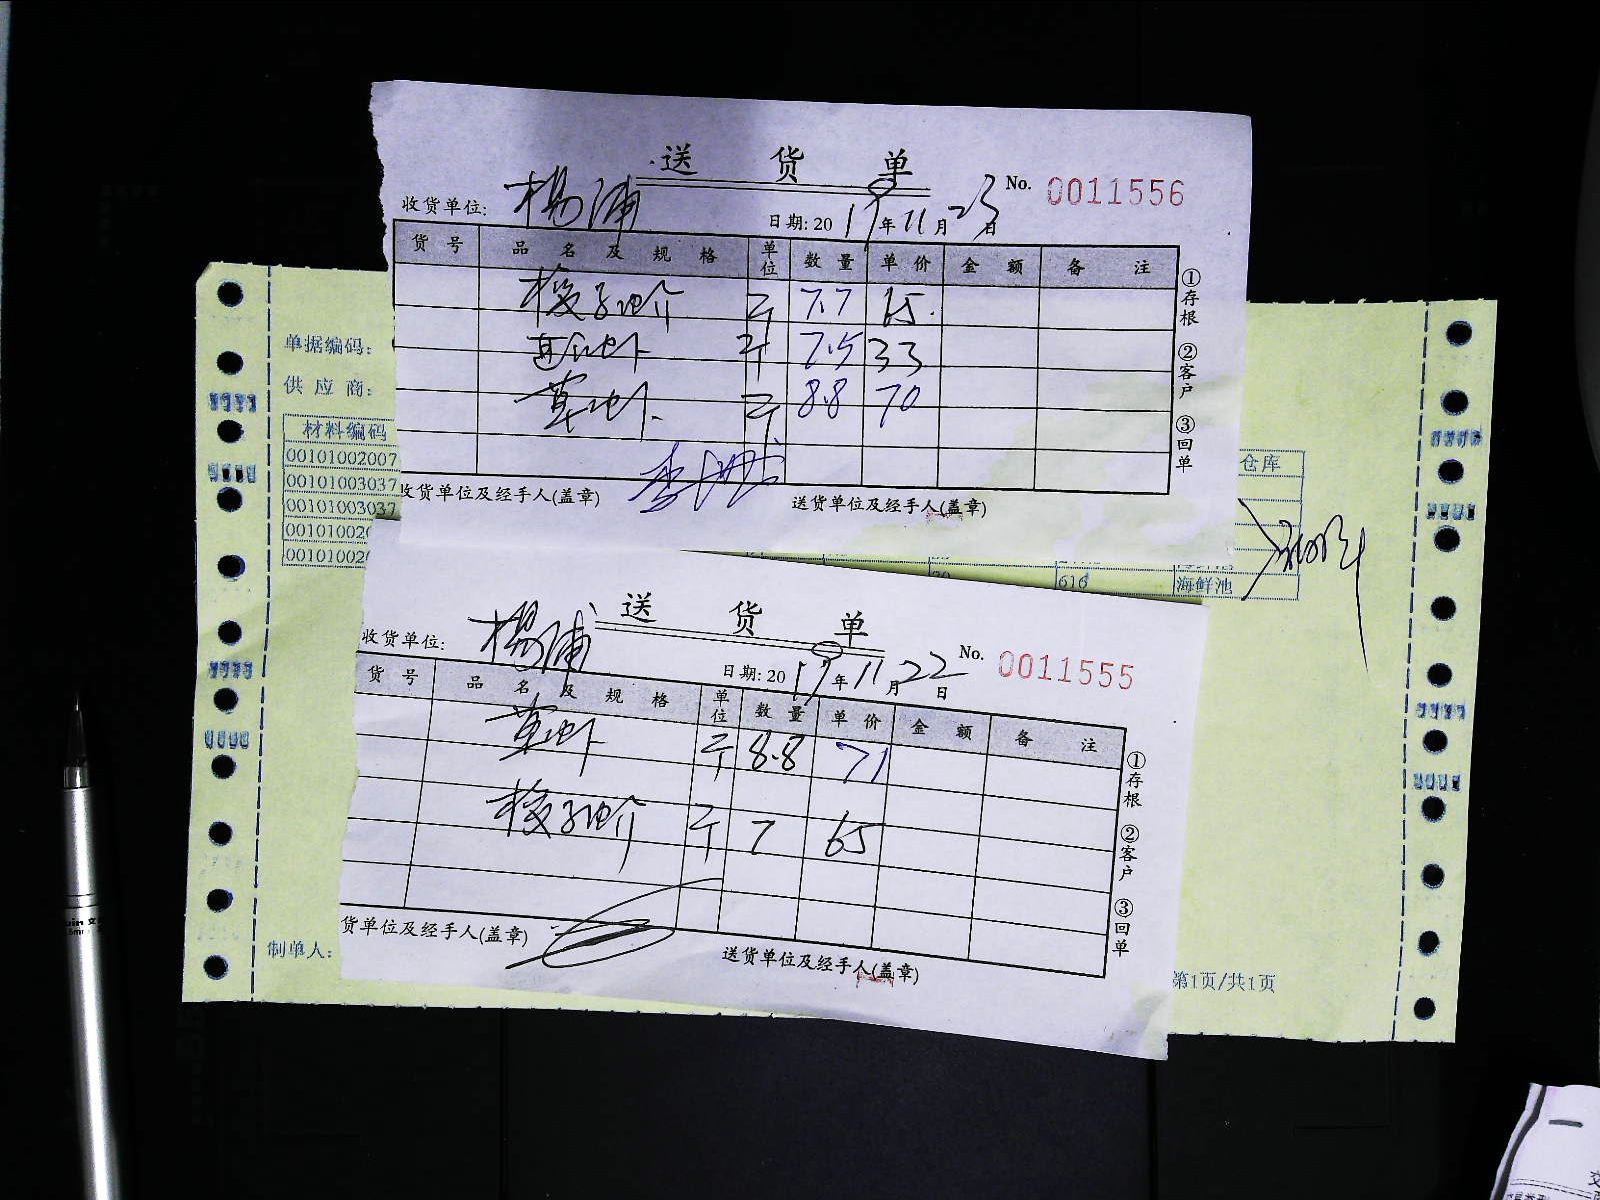 送 货 单
No. 0011556
收货单位: 杨浦
日期: 2017年11月23日
货 号 品 名 及 规 格 单位 数 量 单 价 金 额 备 注
斤 7.7 65
斤 7.5 33
草虾 斤 8.8 70
①存根 ②客户 ③回单
收货单位及经手人(盖章) 送货单位及经手人(盖章)
单据编码:
供 应 商:
材料编码
仓库
00101002007
00101003037
00101003037
00101002
00101002
616 海鲜池
送 货 单
No. 0011555
收货单位: 杨浦
日期: 2017年11月22日
货 号 品 名 及 规 格 单位 数 量 单 价 金 额 备 注
草虾 斤 8.8 71
斤 7 65
①存根 ②客户 ③回单
货单位及经手人(盖章) 送货单位及经手人(盖章)
制单人:
第1页/共1页